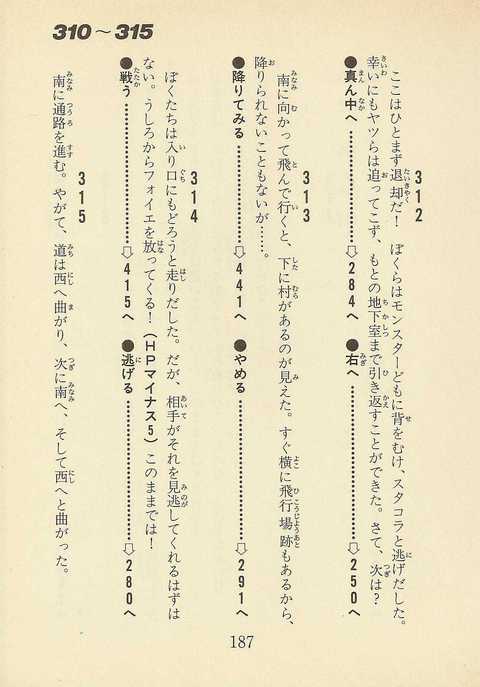 310～315
312
ここはひとまず退却だ！ ぼくらはモンスターどもに背をむけ、スタコラと逃げだした。
幸いにもヤツらは追ってこず、もとの地下室まで引き返すことができた。さて、次は？
●真ん中へ………⇨284へ ●右へ………⇨250へ
313
南に向かって飛んで行くと、下に村があるのが見えた。すぐ横に飛行場跡もあるから、
降りられないこともないが……。
●降りてみる………⇨441へ ●やめる………⇨291へ
314
ぼくたちは入り口にもどろうと走りだした。だが、相手がそれを見逃してくれるはずは
ない。うしろからフォイエを放ってくる！（HPマイナス5）このままでは！
●戦う………⇨415へ ●逃げる………⇨280へ
315
南に通路を進む。やがて、道は西へ曲がり、次に南へ、そして西へと曲がった。
187